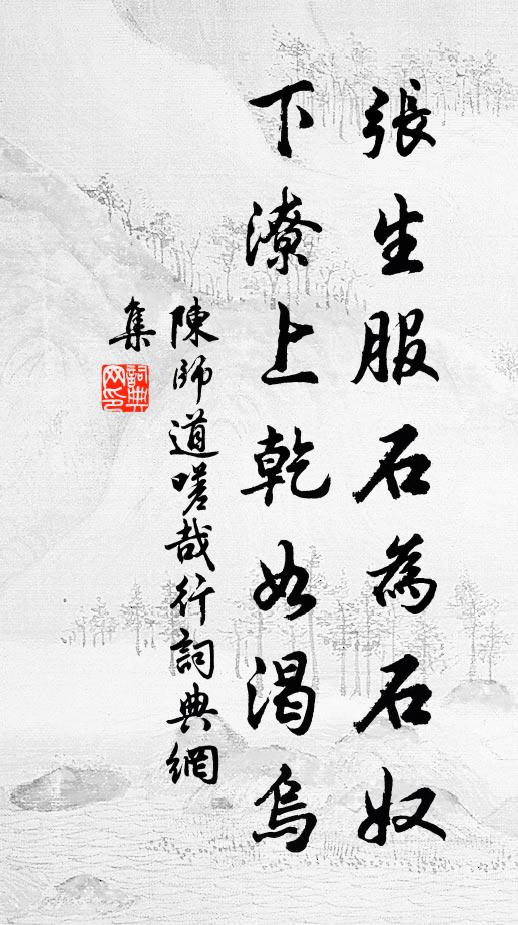 張生服石為石奴
下潦上乾如渴烏
陳師道嗟哉行詞典網
集
詞典
网印